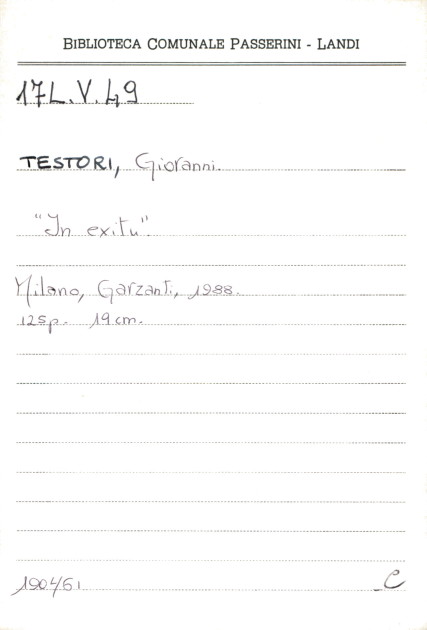 BIBLIOTECA COMUNALE PASSERINI - LANDI
17L.V.49
TESTORI, Giovanni.
"In exitu".
Milano, Garzanti, 1988.
125p. 19cm.
190461 C